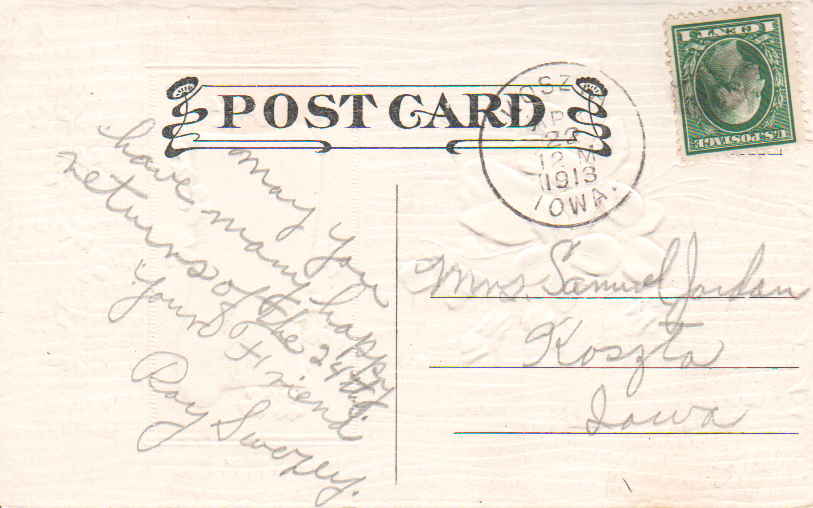 POST CARD
OSZ
AP
22
12 M
1913
IOWA.
1 CENT 1
U.S. POSTAGE
May you
have many happy
returns of the 24th.
Your Friend
Roy Swezey.
Mrs. Samuel Jordan
Koszta
Iowa